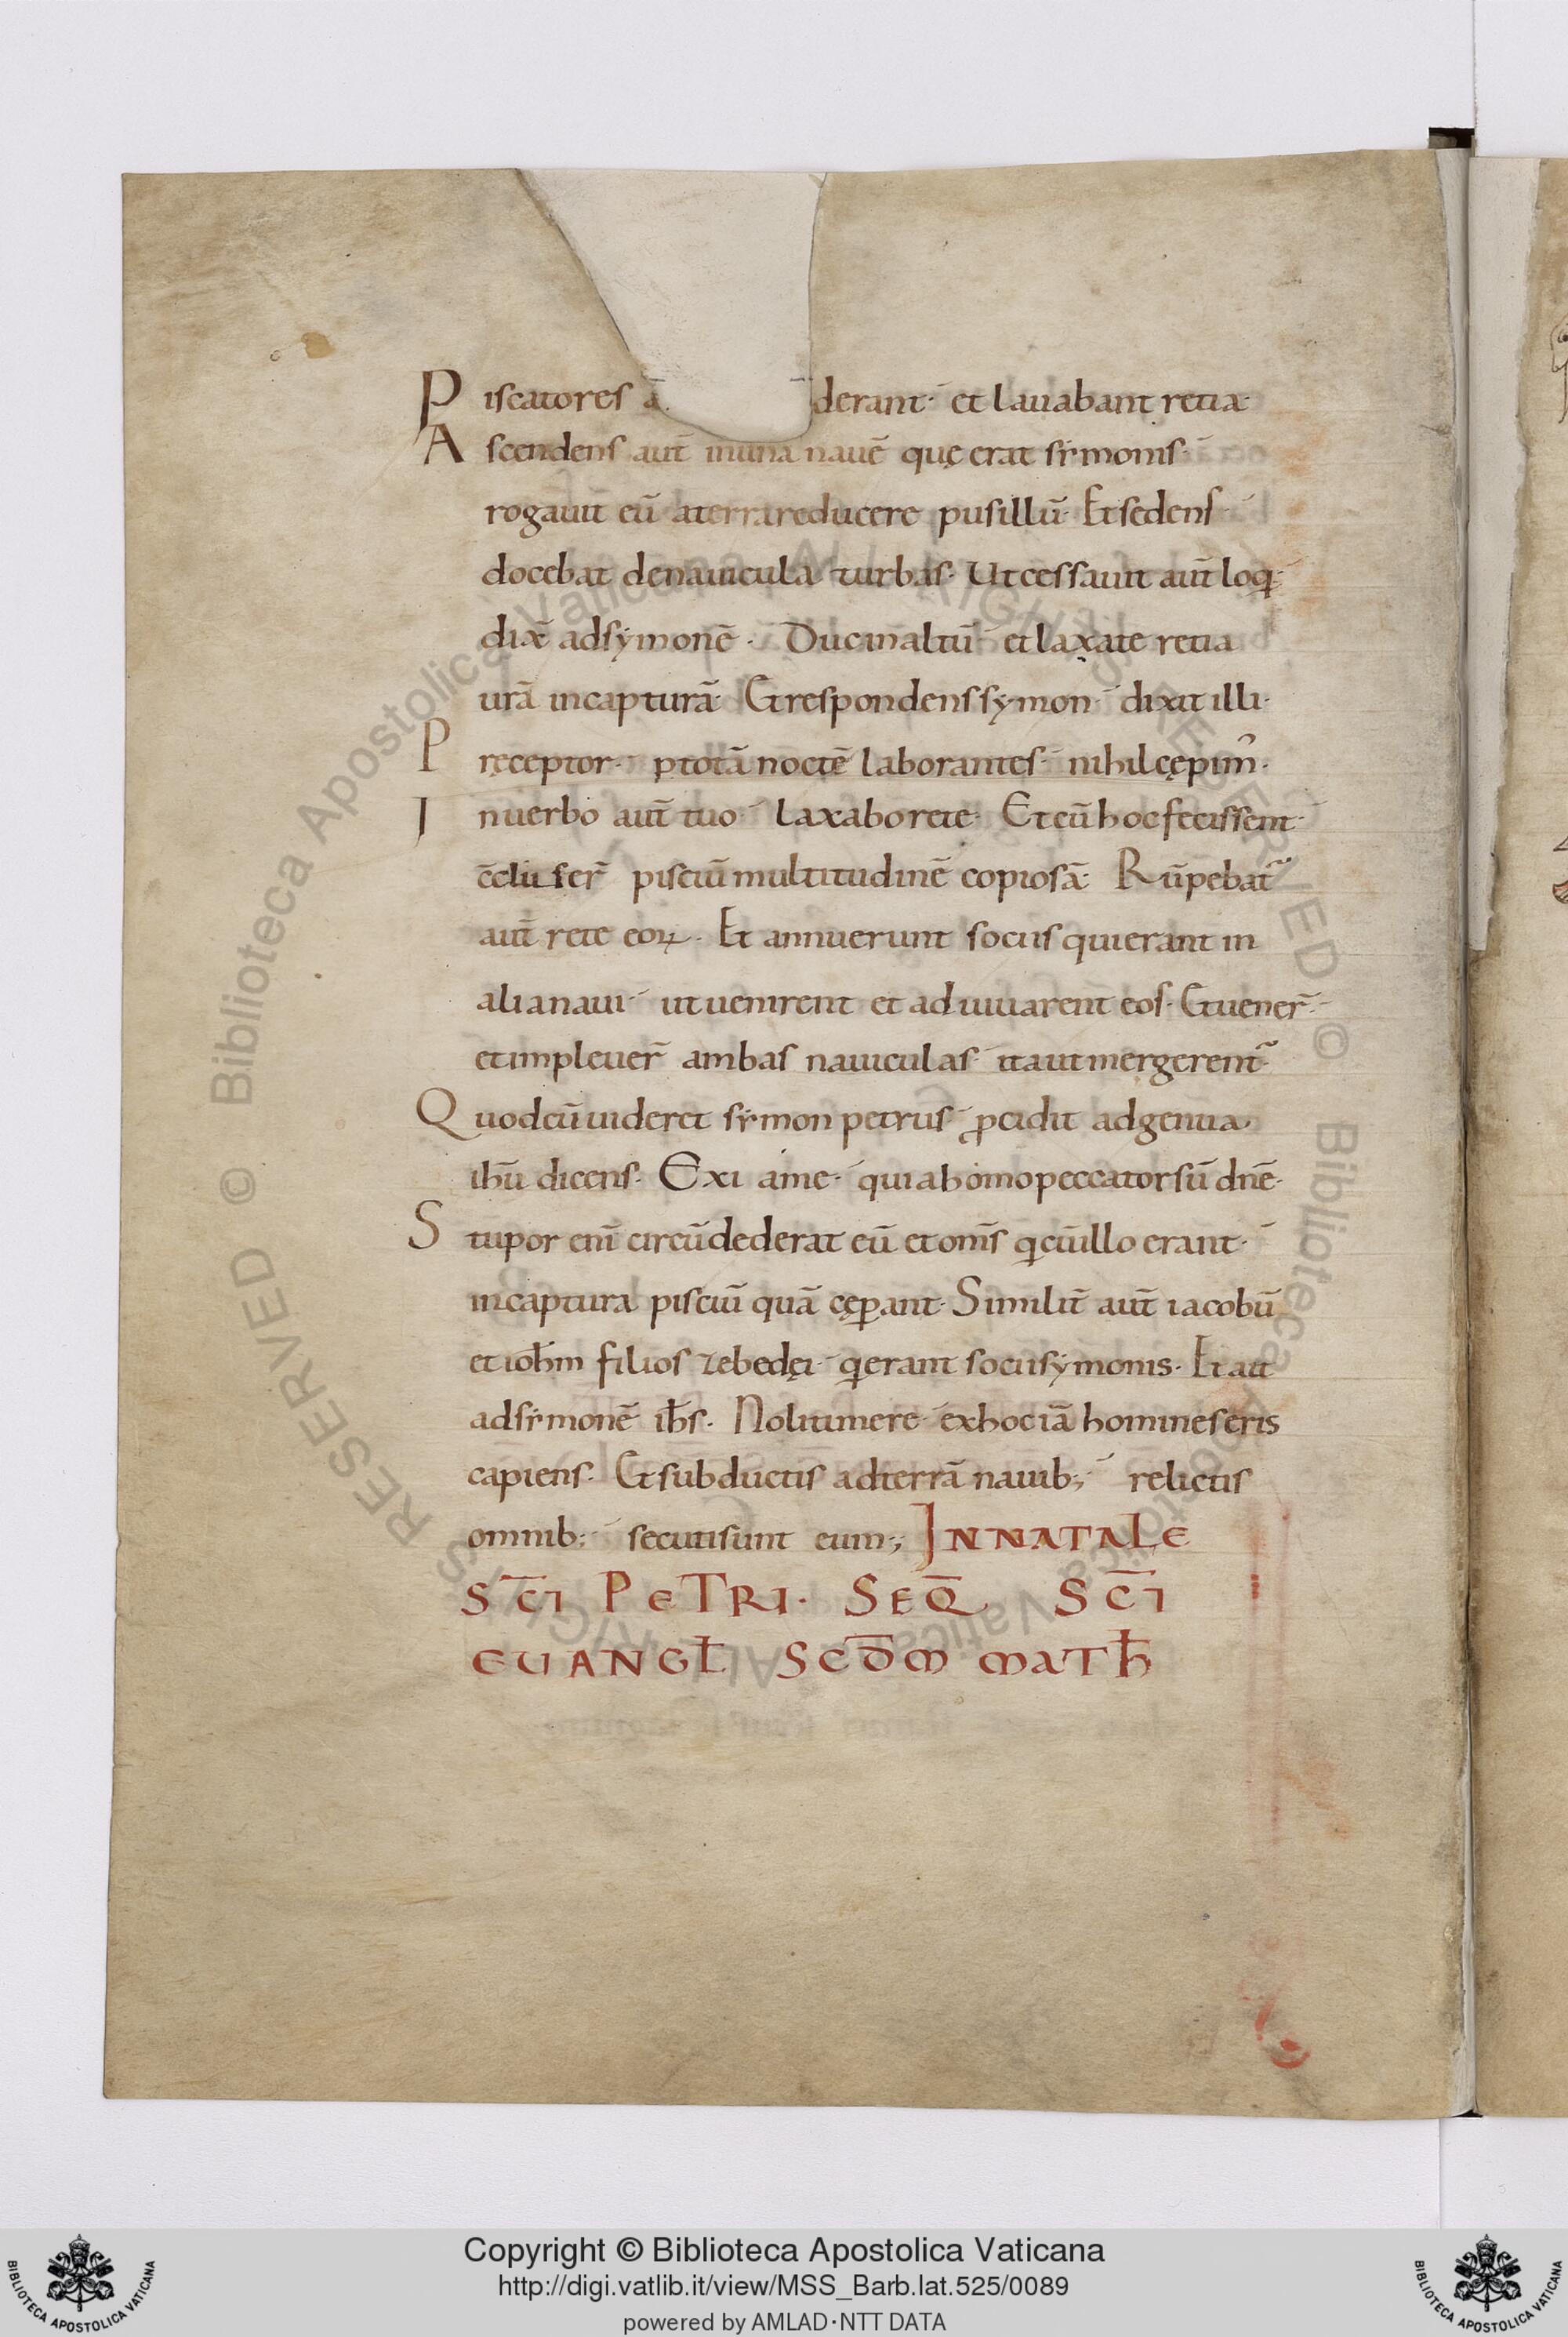 Piscatores a derant· et lauabant retia·
Ascendens aut̄ inuna nauē quę erat sẏmonis·
rogauit eū aterra reducere pusillū· Et sedens
docebat denauicula turbas· Ut cessauit aut̄ loq̄·
dix̄ adsẏmonē· Duc inaltū et laxate retia
ur̄a incapturā· Et respondens sẏmon dixit illi·
Pręceptor· ꝑtotā noctē laborantes· nihil cępimꝰ·
Inuerbo aut̄ tuo laxabo rete· Et cū hoc fecissent·
c̄cluser̄ pisciū multitudinē copiosā· Rūpebat᷑
aut̄ rete eoꝝ· Et annuerunt sociis qui erant in
alia naui· ut uenirent et adiuuarent eos· Et uener̄·
et impleuer̄ ambas nauiculas· ita ut mergerent᷑·
Quod cū uideret sẏmon petrus ꝓcidit adgenua
ihū dicens· Exi ame· quia homo peccator sū dn̄e·
Stupor eni̅ circūdederat eū et om̄s q̄ cūillo erant·
incaptura pisciū quā cęꝑant· Similit̄ aut̄ iacobū
et ioh̄m filios zebedęi· q̄ erant socii sẏmonis· Et ait
adsẏmonē ih̄s· Noli timere· exhoc iā homines eris
capiens· Et subductis adterrā nauib; relictis
omnib; secuti sunt eum; IN NATALE
SC̄I PETRI· SEQ̄ SC̄I
EUANGL̄ SCD̄M MATH̄
Copyright © Biblioteca Apostolica Vaticana
http://digi.vatlib.it/view/MSS_Barb.lat.525/0089
powered by AMLAD·NTT DATA
BIBLIOTECA APOSTOLICA VATICANA
BIBLIOTECA APOSTOLICA VATICANA